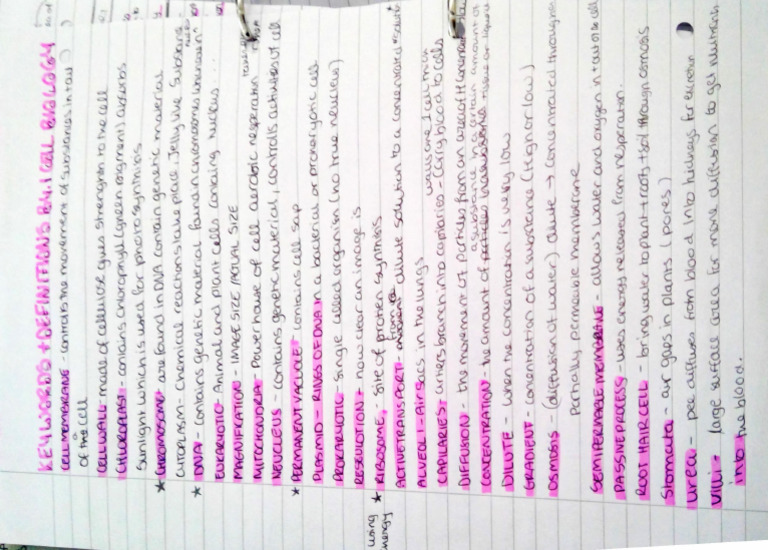 KEYWORDS + DEFINITIONS B4.1 CELL BIOLOGY
CELL MEMBRANE - controls the movement of substances in + out
of the cell
CELL WALL - made of cellulose gives strength to the cell
CHLOROPLAST - contains chlorophyll (green pigment) absorbs
sunlight which is used for photosynthisis
★ CHROMOSOME - are found in DNA contain genetic material
CYTOPLASM - Chemical reactions take place. Jelly like substance
★ DNA - contains genetic material found in chromosomes
EUKARYOTIC - Animal and plant cells containing nucleus...
MAGNIFICATION - IMAGE SIZE / ACTUAL SIZE
MITOCHONDRIA - Power house of cell aerobic respiration
NUCLEUS - contains genetic material, controlls activities of cell
★ PERMANENT VACUOLE - contains cell sap
PLASMID - RINGS OF DNA in a bacterial or prokaryotic cell
PROKARYOTIC - single celled organism (no true neucleus)
RESOLUTION - how clear an image is
★ RIBOSOME - site of protien synthisis
using energy
ACTIVE TRANSPORT - from a dilute solution to a concentrated
ALVEOLI - Air sacs in the lungs
walls are 1 cell thick
CAPILARIES - arteries branch into capilaries - (carry blood to cells
DIFFUSION - the movement of particles from an area of
a substance in a certain amount of
CONCENTRATION - the amount of tissue or liquid
DILUTE - when the concentration is very low
GRADIENT - concentration of a substance (high or low)
OSMOSIS - (diffusion of water) dilute → concentrated through a
partially permeable membrane
SEMI PERMEABLE MEMBRANE - allows water and oxygen in + out of the cell
PASSIVE PROCESS - uses energy released from respiration.
ROOT HAIR CELL - bring water to plant + roots + soil through osmosis
Stomata - air gaps in plants (pores)
Urea - pee diffuses from blood into kidneys for excretion
Villi - large surface area for more diffusion to get nutrients
into the blood.